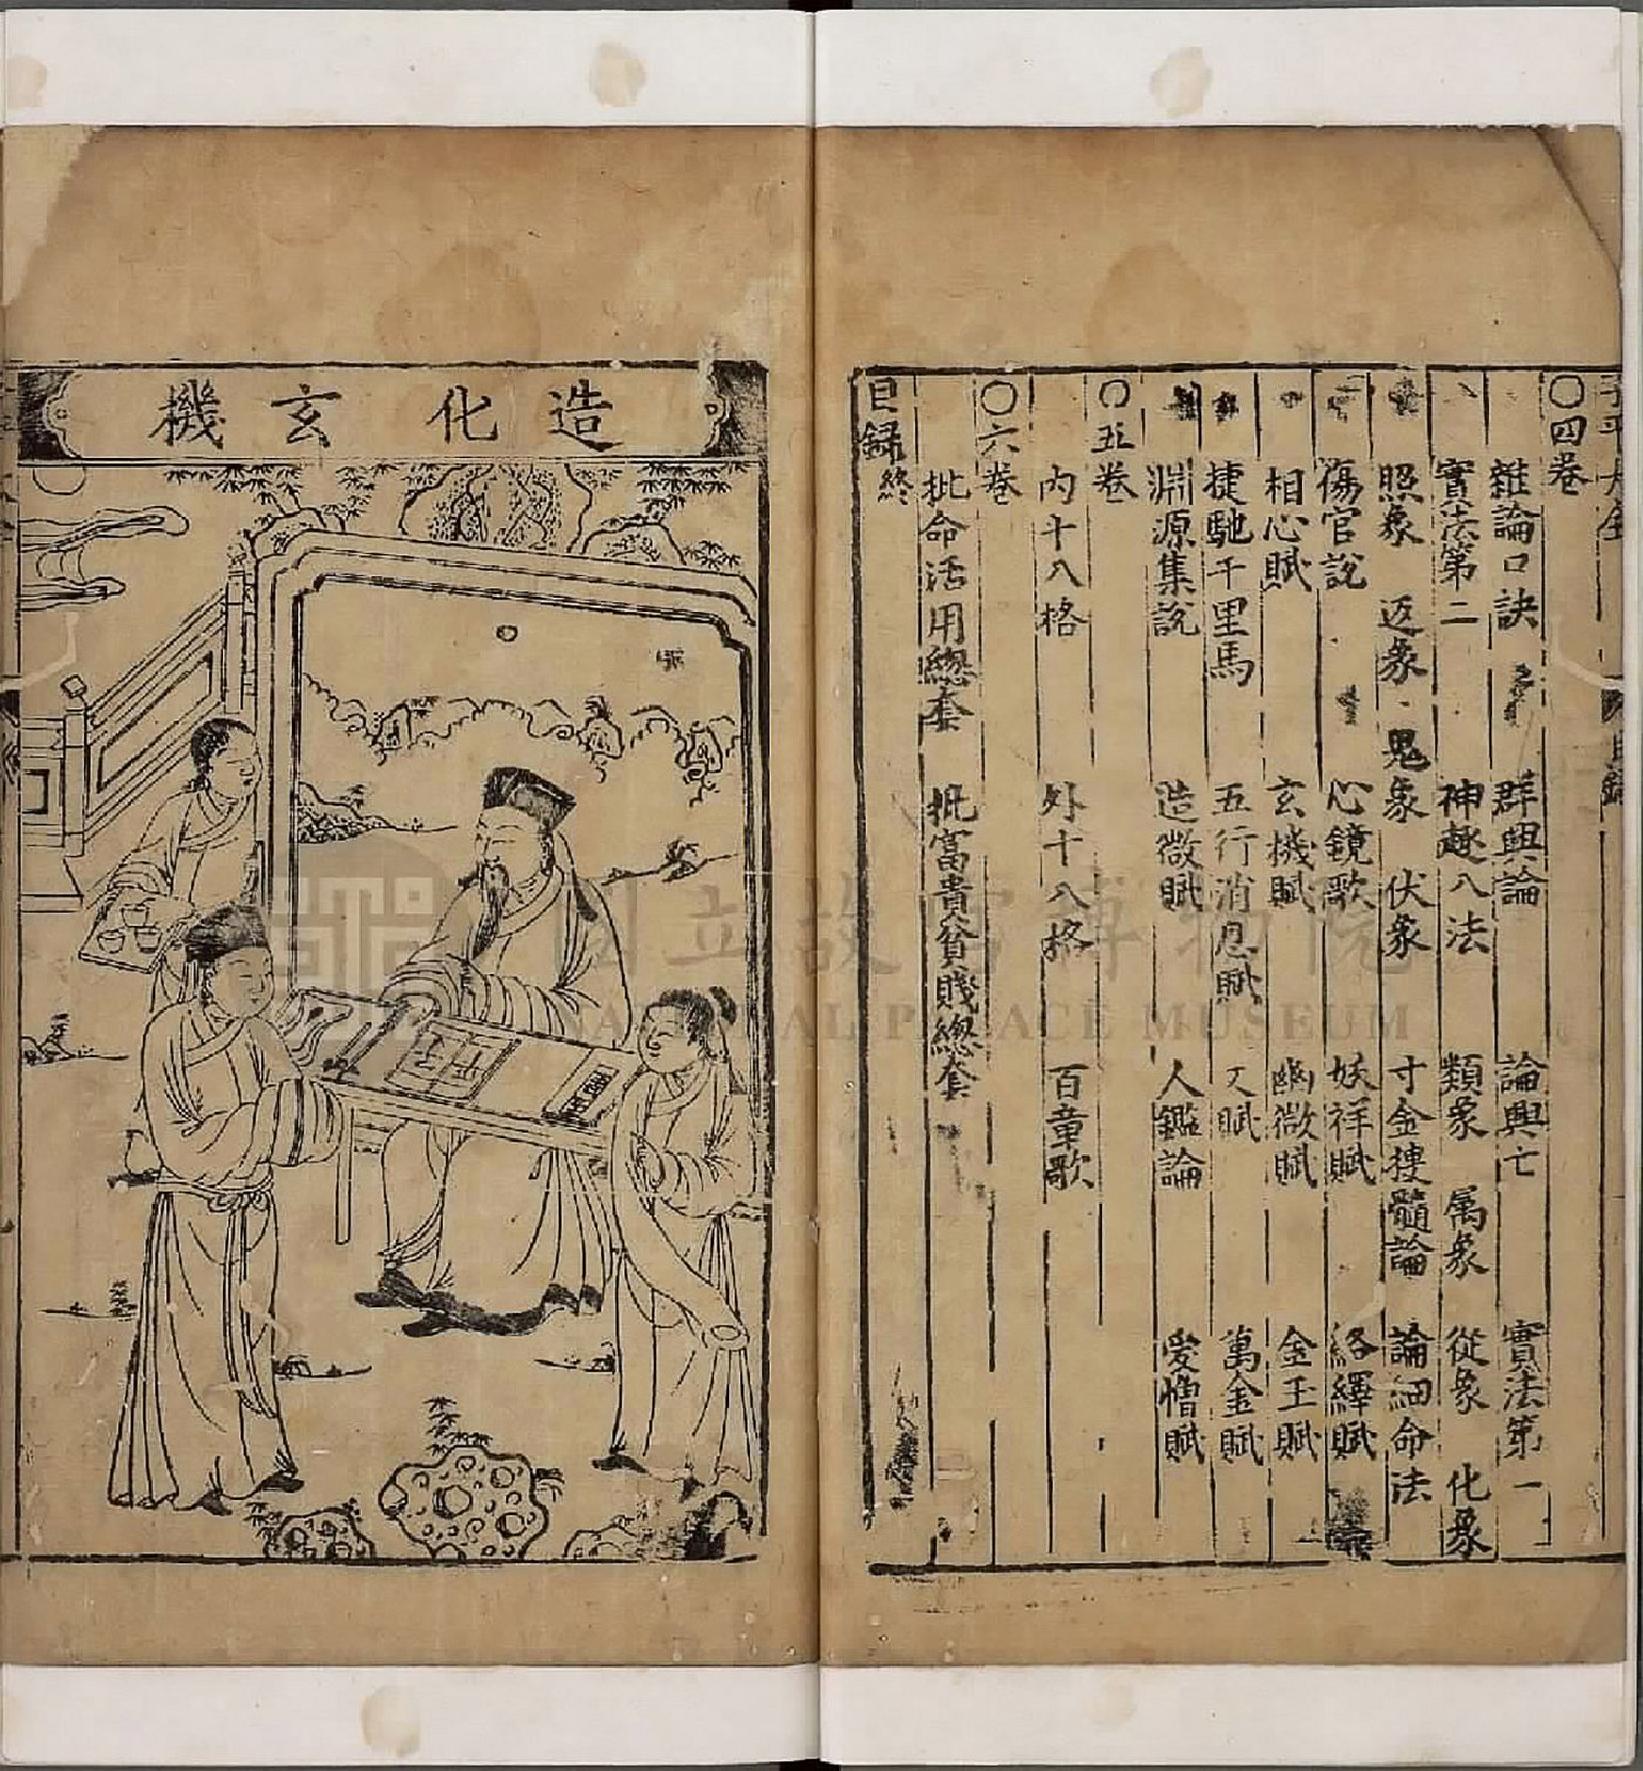 〇四卷
雜論口訣 群興論 論興亡 寶法第一
寶法第二 神趣八法 類象 属象 從象 化象
照象 返象 鬼象 伏象 寸金搜髓論 論細命法
傷官說 心鏡歌 妖祥賦 絡繹賦
相心賦 玄機賦 幽微賦 金玉賦
捷馳千里馬 五行消息賦 人賦 萬金賦
淵源集說 造微賦 人鑑論 愛憎賦
〇五卷
内十八格 外十八格 百章歌
〇六卷
批命活用總套 批富貴貧賤總套
目録終
造化玄機
國立故宮博物院
NATIONAL PALACE MUSEUM